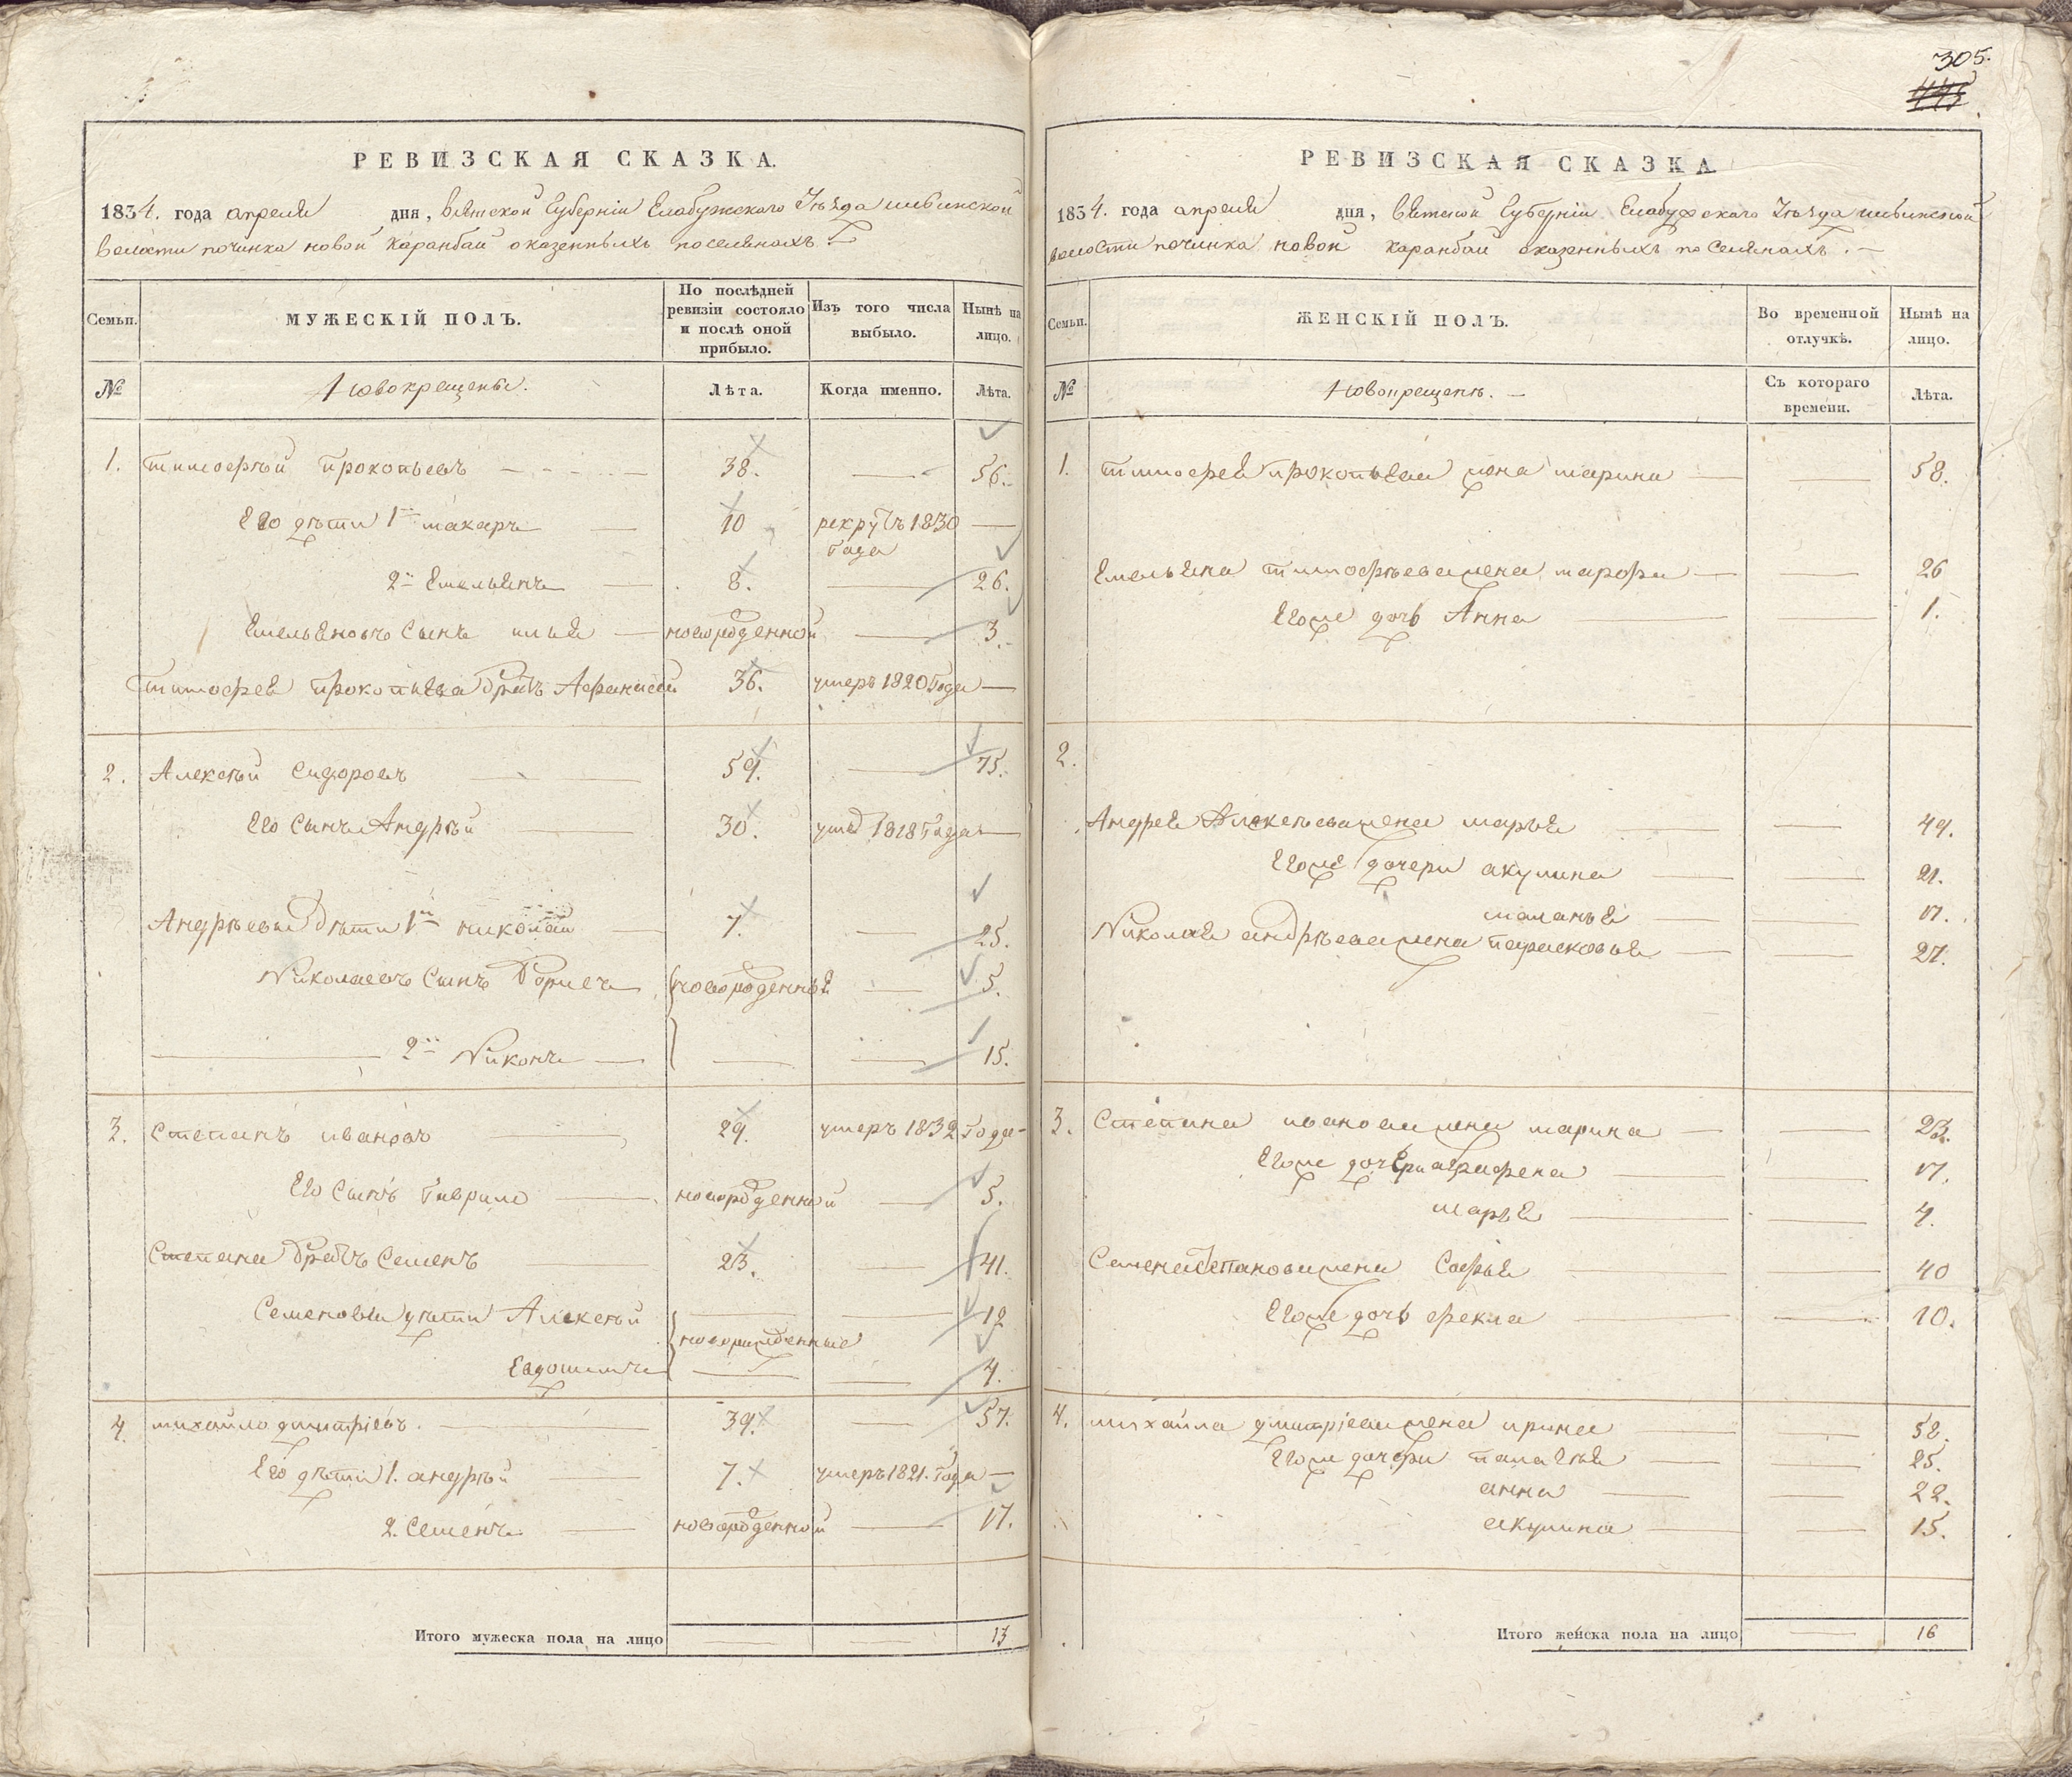 305.
РЕВИЗСКАЯ СКАЗКА.
1834. года апреля дня, вятской Губерніи Елабужскаго Уѣзда
волости починка новой Каранбаи оказенныхъ поселянахъ.
Семьи.
МУЖЕСКІЙ ПОЛЪ.
По послѣдней ревизіи состояло и послѣ оной прибыло.
Изъ того числа выбыло.
Нынѣ на лицо.
№
Новокрещены.
Лѣта.
Когда именно.
Лѣта.
1. тимофѣй прокопьевъ 38. 56.
Его дѣти 1й макаръ 10 рекрутъ 1830 года
2й Емельянъ 8. 26.
Емельяновъ сынъ илья новорожденной 3.
тимофея прокопьева братъ Афанасей 36. умеръ 1820 года
2. Алексѣй Сидоровъ 59. 75.
Его сынъ Андрѣй 30. 1818 года
Андрѣевы дѣти 1й николай 7. 25.
Николаевъ сынъ Борисъ новорожденныя 5.
2й Никонъ 15.
3. Степанъ ивановъ 29. умеръ 1832 года
Его сынъ гаврило новорожденной 5.
Степана братъ Семенъ 23. 41.
Семеновы дѣти Алексѣй 12
новорожденные
Евдокимъ 4.
4. михайло дмитріевъ. 39. 57.
Его дѣти 1. андрѣй 7. умеръ 1821. года
2. Семенъ новорожденной 17.
Итого мужеска пола на лицо 13
РЕВИЗСКАЯ СКАЗКА
1834. года апреля дня, вятской Губерніи Елабужскаго Уѣзда
волости починка новой каранбаи оказенныхъ поселянахъ.
Семьи.
ЖЕНСКІЙ ПОЛЪ.
Во временной отлучкѣ.
Нынѣ на лицо.
№
Новокрещены.
Съ котораго времени.
Лѣта.
1. тимофея прокопьева жена марина 58.
Емельяна тимофѣева жена марфа 26
Егоже дочь Анна 1.
2.
Андрея Алексѣева жена марья 49.
Егоже дочери акулина 21.
маланья 17.
Николая андрѣева жена парасковья 27.
3. Степана иванова жена марина 53.
Егоже дочери аграфена 17.
марья 4.
Семена Степанова жена Софья 40
Егоже дочь фекла 10.
4. михайла дмитріева жена ирина 52.
Егоже дочери палагѣя 25.
анна 22.
акулина 15.
Итого женска пола на лицо 16